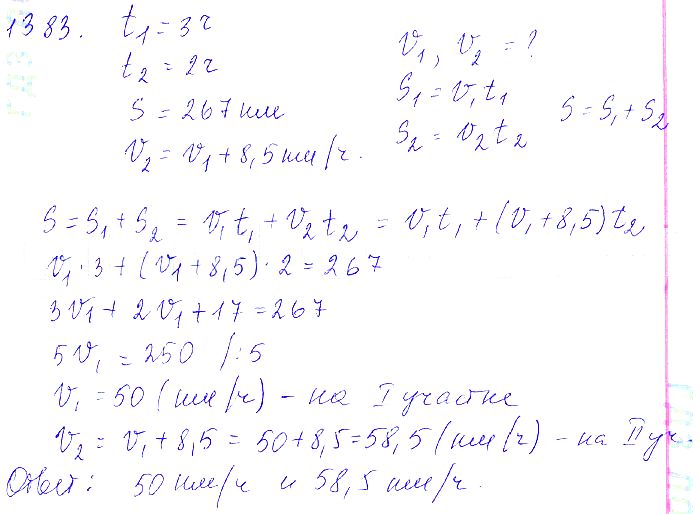 1383. t₁ = 3 ч
t₂ = 2 ч
S = 267 км
v₂ = v₁ + 8,5 км/ч.
v₁, v₂ = ?
S₁ = v₁t₁
S₂ = v₂t₂
S = S₁ + S₂
S = S₁ + S₂ = v₁t₁ + v₂t₂ = v₁t₁ + (v₁ + 8,5)t₂
v₁·3 + (v₁ + 8,5)·2 = 267
3v₁ + 2v₁ + 17 = 267
5v₁ = 250 /:5
v₁ = 50 (км/ч) – на I участке
v₂ = v₁ + 8,5 = 50 + 8,5 = 58,5 (км/ч) – на II уч.
Ответ: 50 км/ч и 58,5 км/ч.